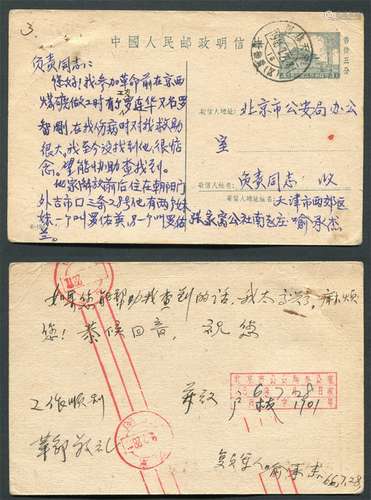 3.
中國人民郵政明信片
售价五分
负责同志:
您好!我参加革命前在京西
煤礦做工时有个罗连华又名罗
智剛在我伤病时对我救助
很大,我至今没找到他,很惦
念。望能协助查找到。
他家解放前后住在朝阳门
外吉市口三条28号他有两个妹
妹一个叫罗佑英,另一个叫罗佑
兰。
收信人地址:
北京市公安局办公
室
收信人姓名:
负责同志 收
寄信人地址姓名:
天津市西郊区
张家窝公社南 庄 喻承杰
如果您能帮助我查到的话,我太 麻烦
您!恭候回音,祝您
工作顺利
革命敬礼
6.7.28
1901
复员军人 喻承杰
66.7.28